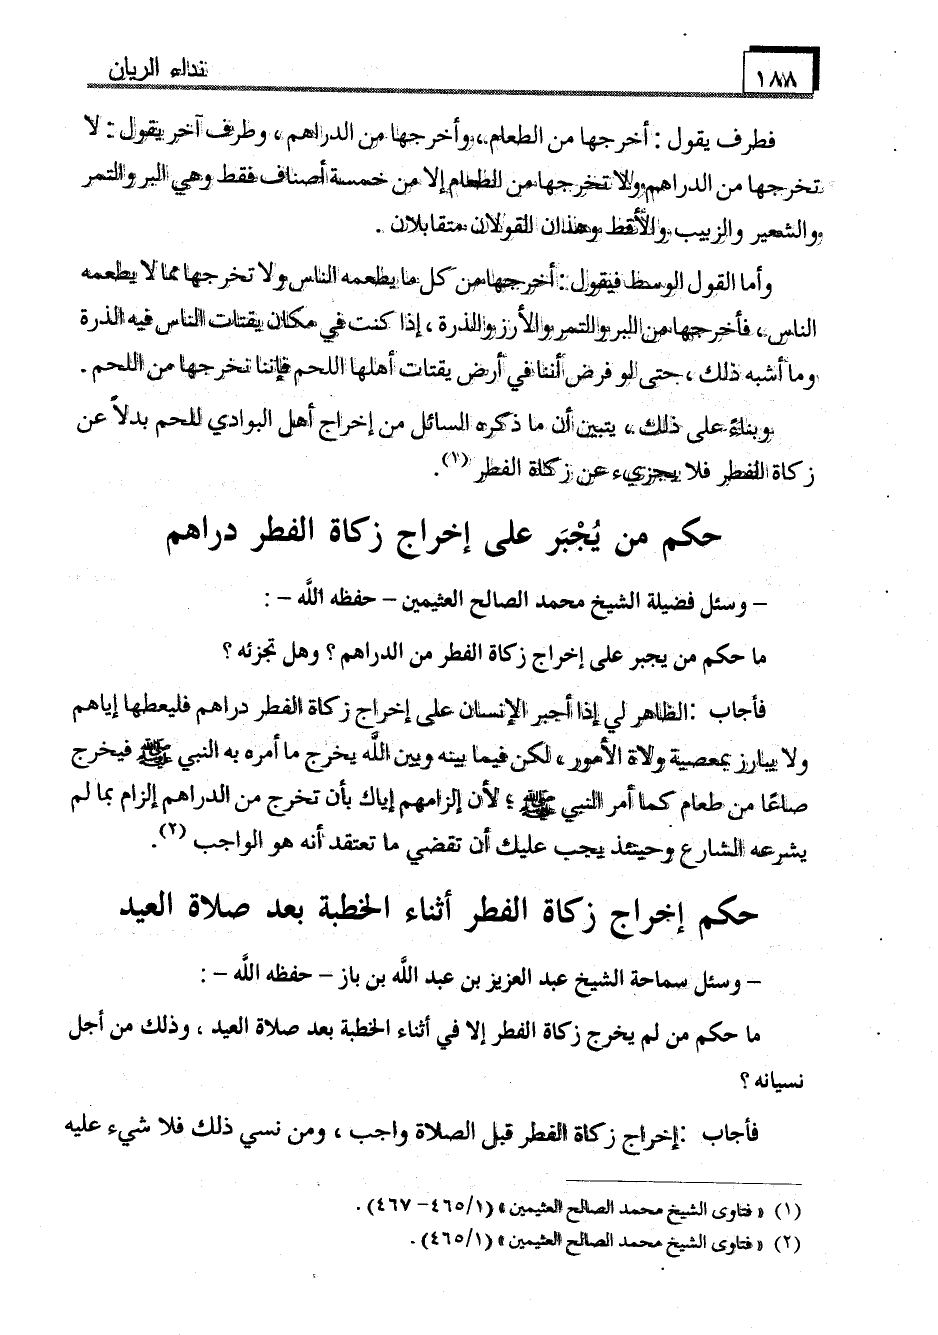 ١٨٨
نداء الريان
فطرف يقول : أخرجها من الطعام ، وأخرجها من الدراهم ، وطرف آخر يقول : لا
تخرجها من الدراهم ولا تخرجها من الطعام إلا من خمسة أصناف فقط وهي البر والتمر
والشعير والزبيب والأقط وهذان القولان متقابلان .
وأما القول الوسط فيقول : أخرجها من كل ما يطعمه الناس ولا تخرجها مما لا يطعمه
الناس ، فأخرجها من البر والتمر والأرز والذرة ، إذا كنت في مكان يقتات الناس فيه الذرة
وما أشبه ذلك ، حتى لو فرض أننا في أرض يقتات أهلها اللحم فإننا نخرجها من اللحم .
وبناءً على ذلك ، يتبين أن ما ذكره السائل من إخراج أهل البوادي للحم بدلاً عن
زكاة الفطر فلا يجزيء عن زكاة الفطر (١).
حكم من يُجْبَر على إخراج زكاة الفطر دراهم
– وسئل فضيلة الشيخ محمد الصالح العثيمين – حفظه اللَّه – :
ما حكم من يجبر على إخراج زكاة الفطر من الدراهم ؟ وهل تجزئه ؟
فأجاب : الظاهر لي إذا أجبر الإنسان على إخراج زكاة الفطر دراهم فليعطها إياهم
ولا يبارز بمعصية ولاة الأمور ، لكن فيما بينه وبين اللَّه يخرج ما أمره به النبي ﷺ فيخرج
صاعًا من طعام كما أمر النبي ﷺ ؛ لأن إلزامهم إياك بأن تخرج من الدراهم إلزام بما لم
يشرعه الشارع وحينئذ يجب عليك أن تقضي ما تعتقد أنه هو الواجب (٢).
حكم إخراج زكاة الفطر أثناء الخطبة بعد صلاة العيد
– وسئل سماحة الشيخ عبد العزيز بن عبد اللَّه بن باز – حفظه اللَّه – :
ما حكم من لم يخرج زكاة الفطر إلا في أثناء الخطبة بعد صلاة العيد ، وذلك من أجل
نسيانه ؟
فأجاب : إخراج زكاة الفطر قبل الصلاة واجب ، ومن نسي ذلك فلا شيء عليه
(١) « فتاوى الشيخ محمد الصالح العثيمين » (٤٦٥/١– ٤٦٧) .
(٢) « فتاوى الشيخ محمد الصالح العثيمين » (٤٦٥/١) .